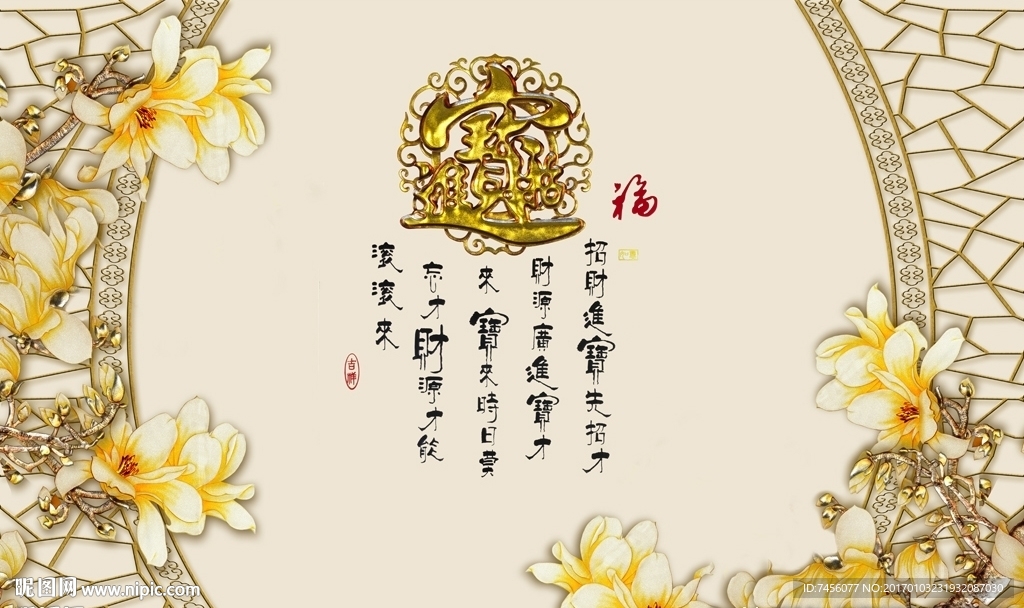 招財進寶
福
招財進寶先招才
財源廣進寶才
來寶來時日莫
忘才財源才能
滾滾來
吉祥
昵图网 www.nipic.com
ID:7456077 NO:20170103231932087030